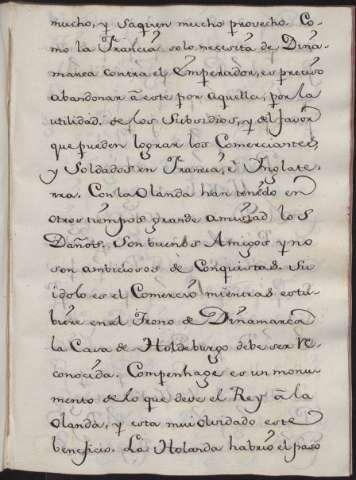 mucho, y saquen mucho provecho. Co-
mo la Francia solo necesita de Dina-
marca contra el Emperador, es preciso
abandonar â este por aquella, por la
utilidad, de los Subsidios, y del favor
que pueden lograr los Comerciantes,
y Soldados en Francia, è Inglate-
rra. Con la Olanda han tenido en
otros tiempos grande amistad los
Daños. Son buenos Amigos y no
son ambiciosos de Conquistas. Su
idolo es el Comercio mientras estu-
biere en el Trono de Dinamarca
la Casa de Holdeburgo debe ser re-
conocida. Compenhage es un monu-
mento de lo que deve el Rey â la
Olanda, y esta mui olvidado este
beneficio. La Holanda habrio el paso